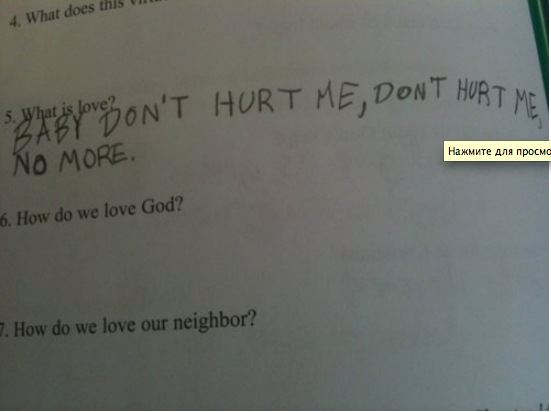 4. What does this
5. What is love?
BABY DON'T HURT ME, DON'T HURT ME,
NO MORE.
Нажмите для
6. How do we love God?
7. How do we love our neighbor?